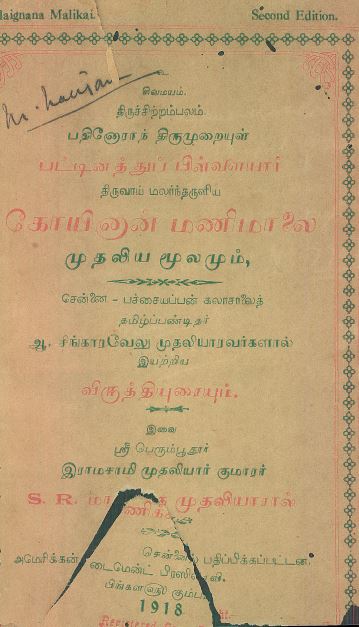 laignana Malikai. Second Edition.
சிவமயம்.
திருச்சிற்றம்பலம்.
பதினோராந் திருமுறையுள்
பட்டினத்துப் பிள்ளையார்
திருவாய் மலர்ந்தருளிய
கோயினான் மணிமாலை
முதலிய மூலமும்,
சென்னை - பச்சையப்பன் கலாசாலைத்
தமிழ்ப்பண்டிதர்
ஆ. சிங்காரவேலு முதலியாரவர்களால்
இயற்றிய
விருத்தியுரையும்.
இவை
ஸ்ரீ பெரும்பூதூர்
இராமசாமி முதலியார் குமாரர்
S. R. முதலியாரால்
சென்னை
அமெரிக்கன் டைமெண்ட் பதிப்பிக்கப்பட்டன.
1918